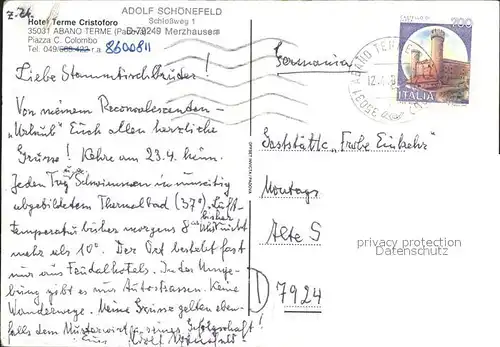 z.Zt.
ADOLF SCHÖNEFELD
Schloßweg 1
D-79249 Merzhausen
Hotel Terme Cristoforo
35031 ABANO TERME (Padova)
Piazza C. Colombo
Tel. 049/ r.a. 8600811
Liebe Stammtischbrüder!
Von meinem Reconvalescenten-
"Urlaub" Euch allen herzliche
Grüsse! Kehre am 23.4. heim.
Jeden Tag Schwimmen im umseitig
abgebildetem Thermalbad (37°), Luft-
temperatur bisher morgens 8 bisher nicht
mehr als 10°. Der Ort besteht fast
nur aus Feudalhotels. In der Umge-
bung gibt es nur Autostrassen. Keine
Wanderwege. Meine Grüsse gelten eben-
falls dem Musterwirt u. seines Gefolgschaft!
Euer Adolf Schönefeld
Germania
ABANO TERME
700
ITALIA
Gaststätte "Frohe Einkehr"
Montags
Alte S
D 7924
privacy protection
Datenschutz